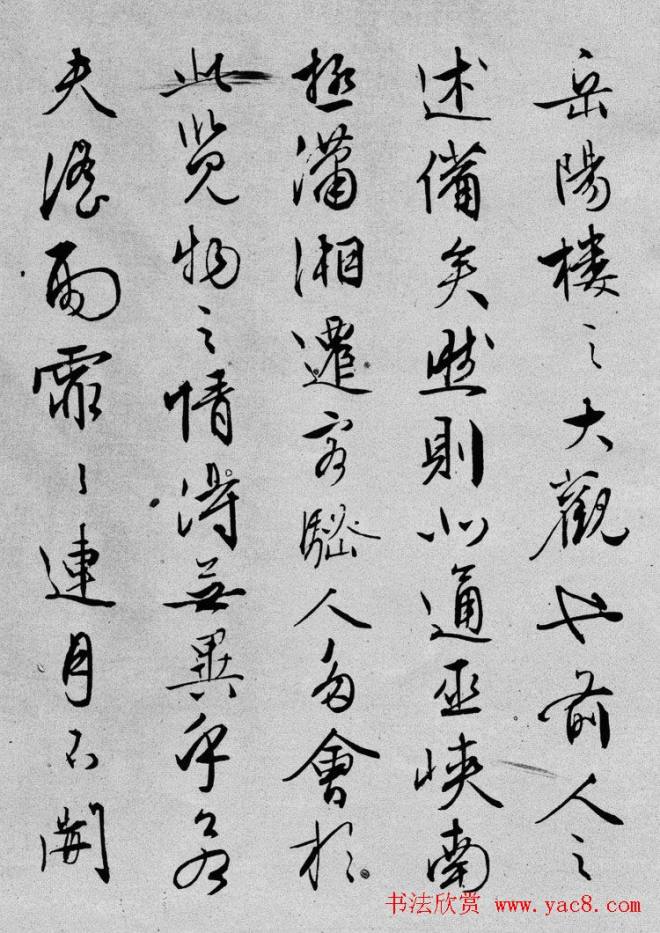 岳陽樓之大觀也前人之
述備矣然則北通巫峽南
極瀟湘遷客騷人多會於
此覽物之情得無異乎若
夫淫雨霏〻連月不開
书法欣赏 www.yac8.com